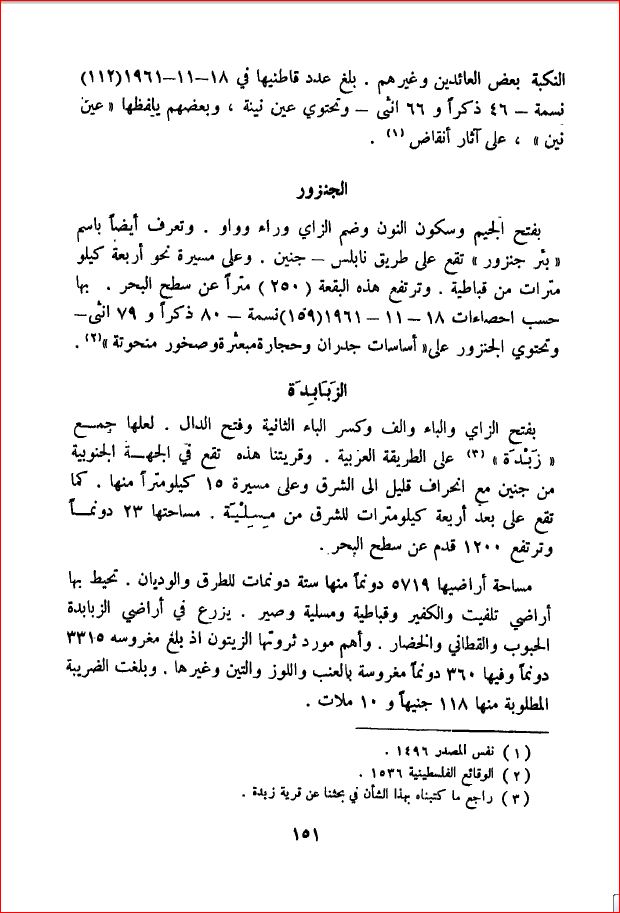 النكبة بعض العائدين وغيرهم . بلغ عدد قاطنيها في ١٨–١١–١٩٦١(١١٢)
نسمة – ٤٦ ذكراً و ٦٦ انثى – وتحتوي عين نينة ، وبعضهم يلفظها « عين
نين » ، على آثار أنقاض (١) .
الجنزور
بفتح الجيم وسكون النون وضم الزاي وراء وواو . وتعرف أيضاً باسم
« بئر جنزور » تقع على طريق نابلس – جنين . وعلى مسيرة نحو أربعة كيلو
مترات من قباطية . وترتفع هذه البقعة (٢٥٠) متراً عن سطح البحر . بها
حسب احصاءات ١٨ – ١١ – ١٩٦١(١٥٩)نسمة – ٨٠ ذكراً و ٧٩ انثى–
وتحتوي الجنزور على« أساسات جدران وحجارة مبعثرة وصخور منحوتة »(٢) .
الزَبَابِدَة
بفتح الزاي والباء والف وكسر الباء الثانية وفتح الدال . لعلها جمع
« زَبْدَة » (٣) على الطريقة العربية . وقريتنا هذه تقع في الجهة الجنوبية
من جنين مع انحراف قليل الى الشرق وعلى مسيرة ١٥ كيلومتراً منها . كما
تقع على بعد أربعة كيلومترات للشرق من مِسِلْيَة . مساحتها ٢٣ دونماً
وترتفع ١٢٠٠ قدم عن سطح البحر .
مساحة أراضيها ٥٧١٩ دونماً منها ستة دونمات للطرق والوديان . تحيط بها
أراضي تلفيت والكفير وقباطية ومسلية وصير . يزرع في أراضي الزبابدة
الحبوب والقطاني والخضار . وأهم مورد ثروتها الزيتون اذ بلغ مغروسه ٣٣١٥
دونماً وفيها ٣٦٠ دونماً مغروسة بالعنب واللوز والتين وغيرها . وبلغت الضريبة
المطلوبة منها ١١٨ جنيهاً و ١٠ ملات .
(١) نفس المصدر ١٤٩٦ .
(٢) الوقائع الفلسطينية ١٥٣٦ .
(٣) راجع ما كتبناه بهذا الشأن في بحثنا عن قرية زبدة .
١٥١